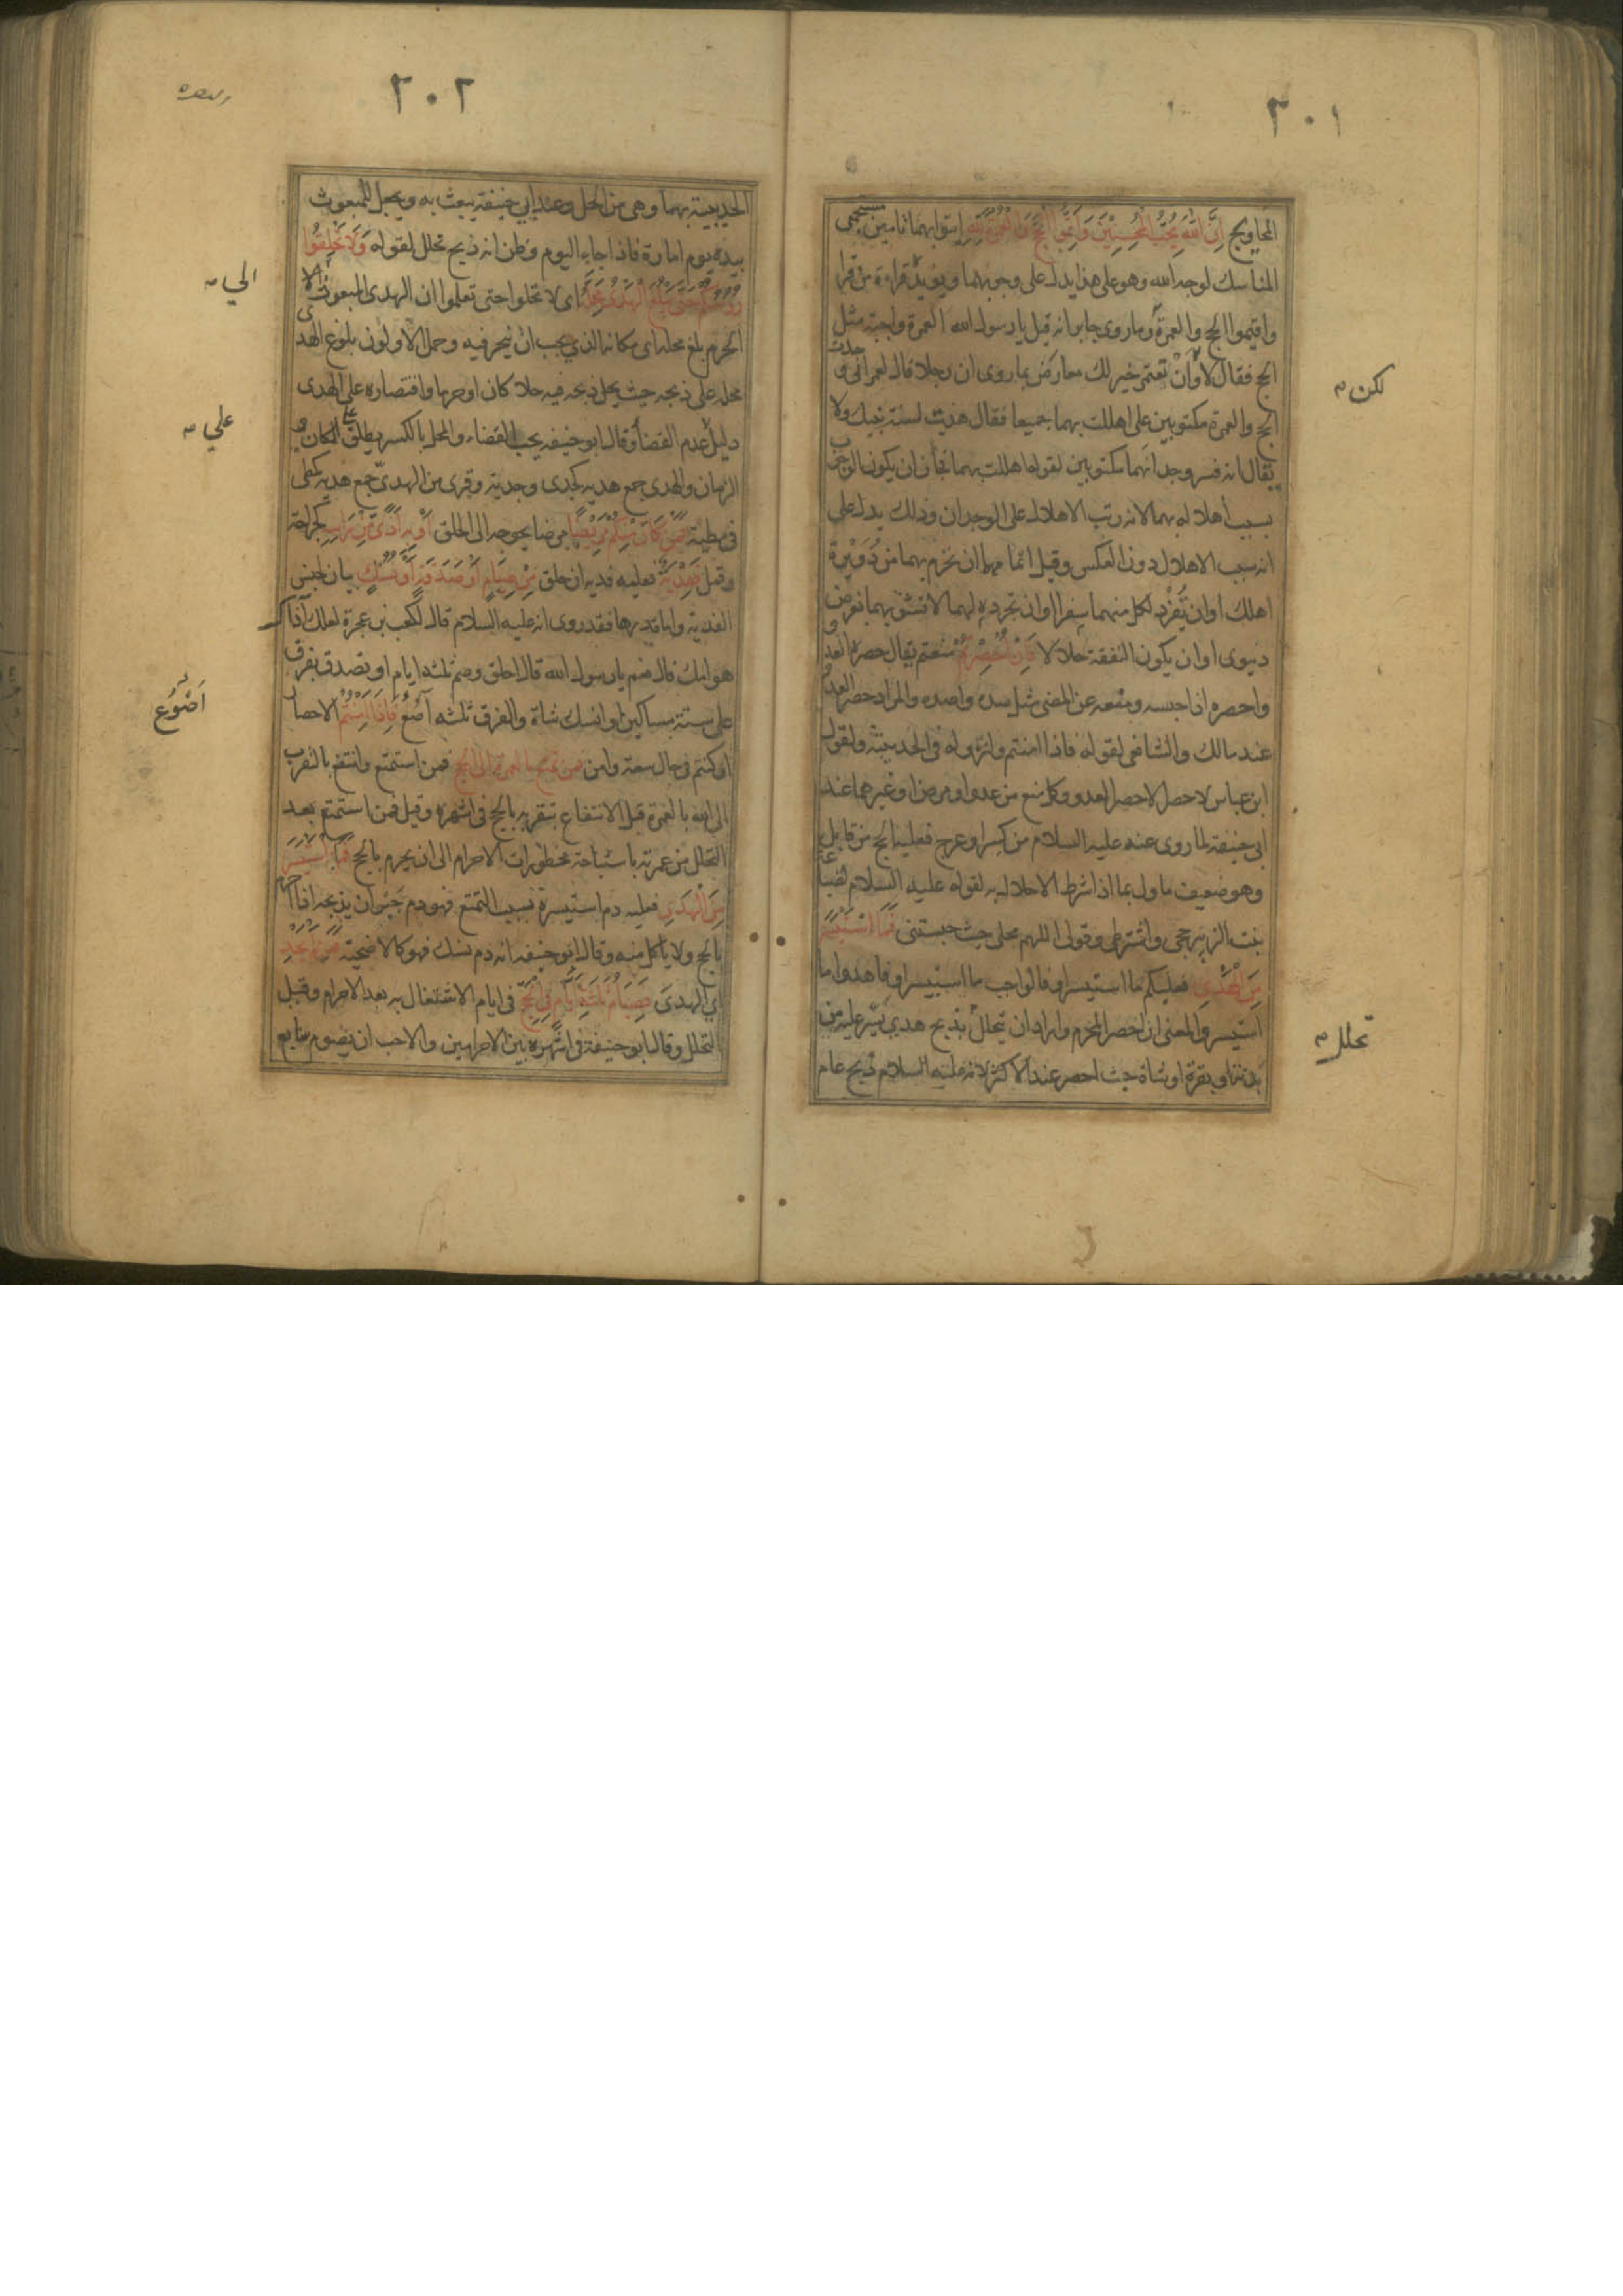 ٢٠١
المحاويج اِنَّ اللهَ يُحِبُّ الْمُحْسِنِيْنَ وَاَتِمُّوا الْحَجَّ وَالْعُمْرَةَ لِلّٰهِ ايتوا بهما تامين مستجمعى
المناسك لوجه الله وهو على هذا يدل على وجوبهما ويؤيده قراءة من قرا
واقيموا الحج والعمرة وما روى جابر انه قيل يا رسول الله العمرة واجبة مثل
الحج فقال لا وَاَنْ تعتمر خير لك معارض بما روى ان رجلا قال لعمر انى وجدت
لكن
الحج والعمرة مكتوبين على اهللت بهما جميعا فقال هديت لسنة نبيك ولا
يقال انه فسر وجدانهما مكتوبين لقوله اهللت بهما فجاز ان يكون الوجوب
بسبب اهلاله بهما لانه رتب الاهلال على الوجدان وذلك يدل على
انه سبب الاهلال دون العكس وقيل اتمامهما ان تحرم بهما من دُوَيْرة
اهلك او ان تُفْرِد لكل منهما سفرا او ان تجرده لهما لا تشوبهما بغرض
دنيوى او ان يكون النفقة حلالا فَاِنْ اُحْصِرْتُمْ منعتم يقال حصره العدو
واحصره اذا حبسه ومنعه عن المضى مثل صده واصده والمراد حصر العدو
عند مالك والشافعى لقوله فاذا امنتم ولنزوله فى الحديبية ولقول
ابن عباس لا حصر الا حصر العدو وكل منع من عدو او مرض او غيرهما عند
ابى حنيفة لما روى عنه عليه السلام من كسر او عرج فعليه الحج من قابل
وهو ضعيف ماول بما اذا شرط الاحلال به لقوله عليه السلام لضباعة
بنت الزبير حجى واشترطى وقولى اللهم محلى حيث حبستنى فَمَا اسْتَيْسَرَ
مِنَ الْهَدْىِ فعليكم ما استيسر او فالواجب ما استيسر او فاهدوا ما
استيسر والمعنى ان احصر المحرم واراد ان يتحلل بذبح هدى تيسر عليه من
تحلل
بدنة او بقرة او شاة حيث احصر عند الاكثر لانه عليه السلام ذبح عام
٢٠٢
الحديبية بهما وهى من الحل وعند ابي حنيفة يبعث به ويجعل للمبعوث
بيده يوم امارة فاذا جاء اليوم وظن انه ذبح تحلل لقوله وَلَا تَحْلِقُوْا
رُؤُسَكُمْ حَتّٰى يَبْلُغَ الْهَدْىُ مَحِلَّهُ اى لا تحلوا حتى تعلموا ان الهدى المبعوث الى
الي
الحرم بلغ محله اى مكانه الذي يجب ان ينحر فيه وحمل الاولون بلوغ الهدى
محله على ذبحه حيث يحل ذبحه فيه حلا كان او حرما واقتصاره على الهدى
دليل عدم القضا وقال ابو حنيفه يجب القضاء والمحل بالكسر يطلق على المكان و
علي
الزمان والهدى جمع هدية كجدى وجدية وقرى من الهدىّ جمع هدية كمطى
فى مطية فَمَنْ كَانَ مِنْكُمْ مَرِيْضًا مرضا يحوجه الى الحلق اَوْ بِه اَذًى مِّنْ رَاسِه كجراحة
وقمل فَفِدْيَةٌ فعليه فدية ان حلق مِنْ صِيَامٍ اَوْ صَدَقَةٍ اَوْ نُسُكٍ بيان لجنس
الفدية واما قدرها فقد روى انه عليه السلام قال لكعب بن عجرة لعلك آذاك
هوامك قال نعم يا رسول الله قال احلق وصم ثلثه ايام او تصدق بفرق
على ستة مساكين او انسك شاة والفرق ثلثه آصُعٍ فَاِذَا اَمِنْتُمْ الاحصار
اَصْوُع
او كنتم فى حال سعة وامن فَمَنْ تَمَتَّعَ بِالعُمرةِ اِلَى الحَجّ فمن استمتع وانتفع بالتقرب
الى الله بالعمرة قبل الانتفاع بتقربه بالحج فى اشهره وقيل فمن استمتع بعد
التحلل من عمرته باستباحة محظورات الاحرام الى ان يحرم بالحج فَمَا اسْتَيْسَرَ
مِنَ الْهَدْىِ فعليه دم استيسره بسبب التمتع فهو دم جبران يذبحه اذا احرم
بالحج ولا ياكل منه وقال ابو حنيفه انه دم نسك فهو كالاضحية فَمَنْ لَمْ يَجِدْ
اي الهدىَ فَصِيَامُ ثَلٰثَةِ اَيَّامٍ فِى الْحَجِّ فى ايام الاشتغال به بعد الاحرام وقبل
التحلل وقال ابو حنيفة فى اشهره بين الاحرامين والاحب ان يصوم سابع